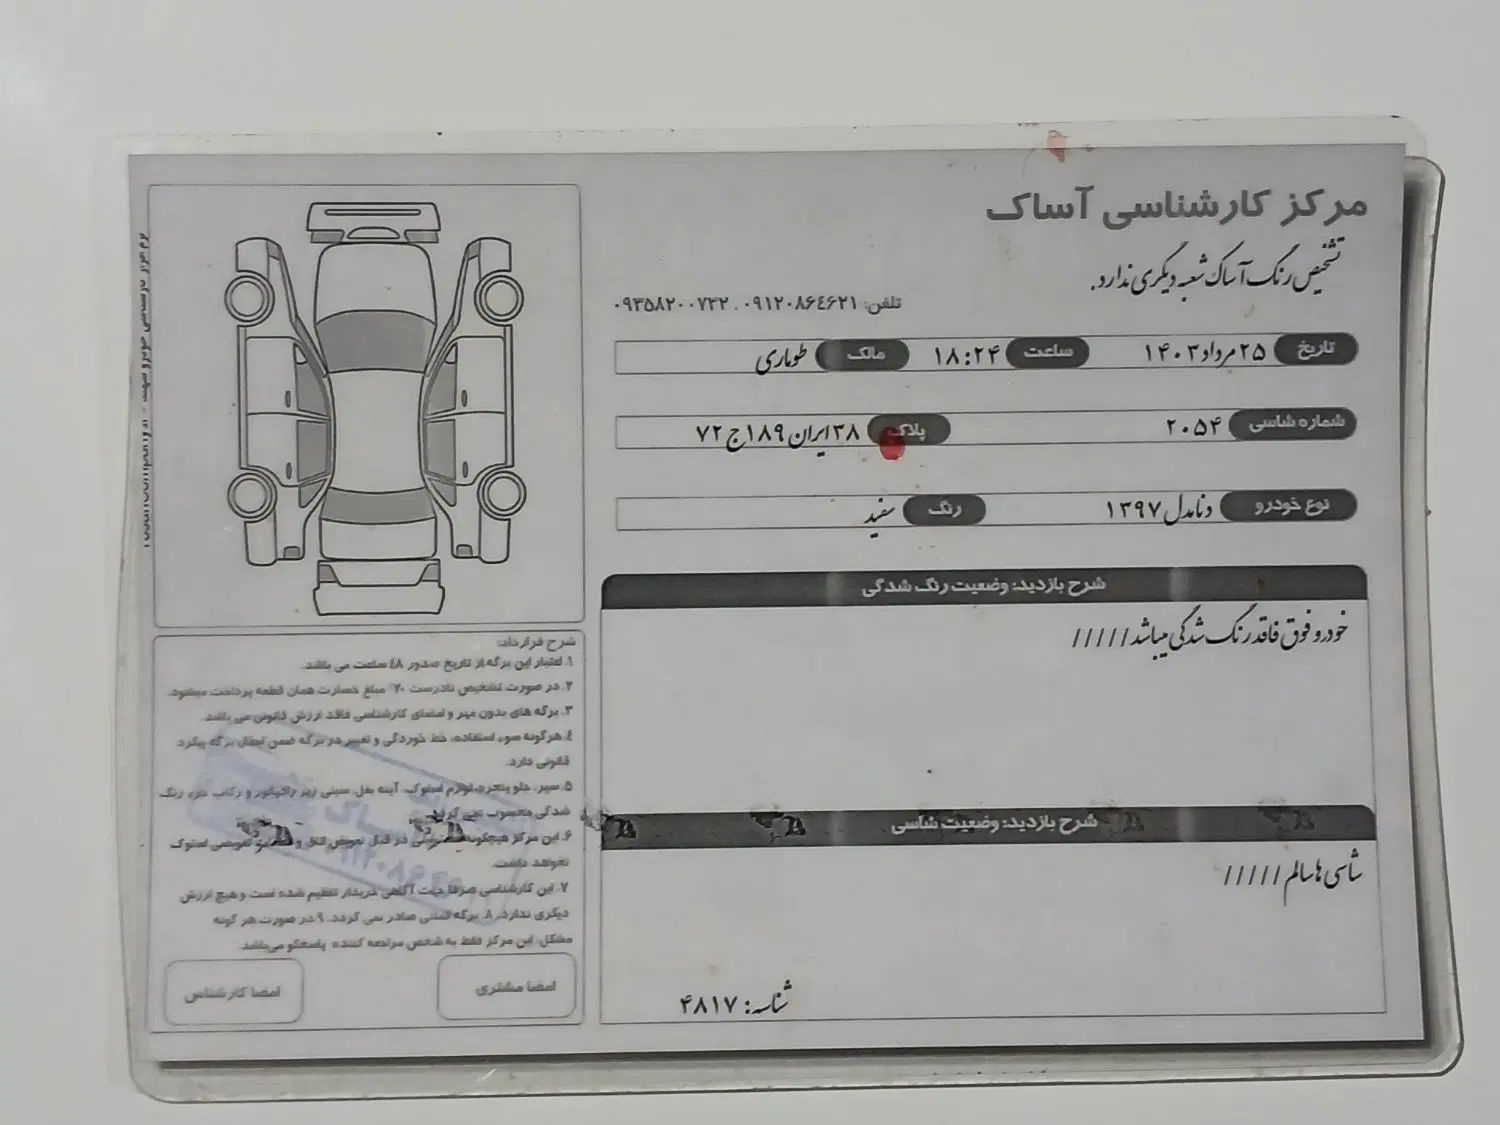 مرکز کارشناسی آساک
تشخیص رنگ آساک شعبه دیگری ندارد.
تلفن: ۰۹۱۲۰۸۶٤۶۲۱ . ۰۹۳۵۸۲۰۰۷۳۲
تاریخ ۲۵ مرداد ۱۴۰۳ ساعت ۱۸:۲۴ مالک طوماری
شماره شاسی ۲۰۵۴ پلاک ۳۸ ایران ۱۸۹ ج ۷۲
نوع خودرو دنا مدل ۱۳۹۷ رنگ سفید
شرح بازدید: وضعیت رنگ شدگی
خودرو فوق فاقد رنگ شدگی میباشد /////
شرح بازدید: وضعیت شاسی
شاسی ها سالم /////
شناسه: ۴۸۱۷
شرح قرارداد:
۱. اعتبار این برگه از تاریخ صدور ٤۸ ساعت می باشد.
۲. در صورت تشخیص نادرست ۲۰٪ مبلغ خسارت همان قطعه پرداخت میشود.
۳. برگه های بدون مهر و امضای کارشناسی فاقد ارزش قانونی می باشد.
٤. هرگونه سوء استفاده، خط خوردگی و تغییر در برگه ضمن ابطال برگه پیگرد
قانونی دارد.
۵. سپر، جلو پنجره، لوازم استوک، آینه بغل، سینی زیر رادیاتور و رکاب جزء رنگ
شدگی محسوب نمی گردد.
۶. این مرکز هیچگونه در قبال تعویض اتاق و تعویضی استوک
نخواهد داشت.
۷. این کارشناسی صرفا جهت آگاهی خریدار تنظیم شده است و هیچ ارزش
دیگری ندارد. ۸. برگه المثنی صادر نمی گردد. ۹. در صورت هر گونه
مشکل، این مرکز فقط به شخص مراجعه کننده پاسخگو می‌باشد.
امضا مشتری
امضا کارشناس